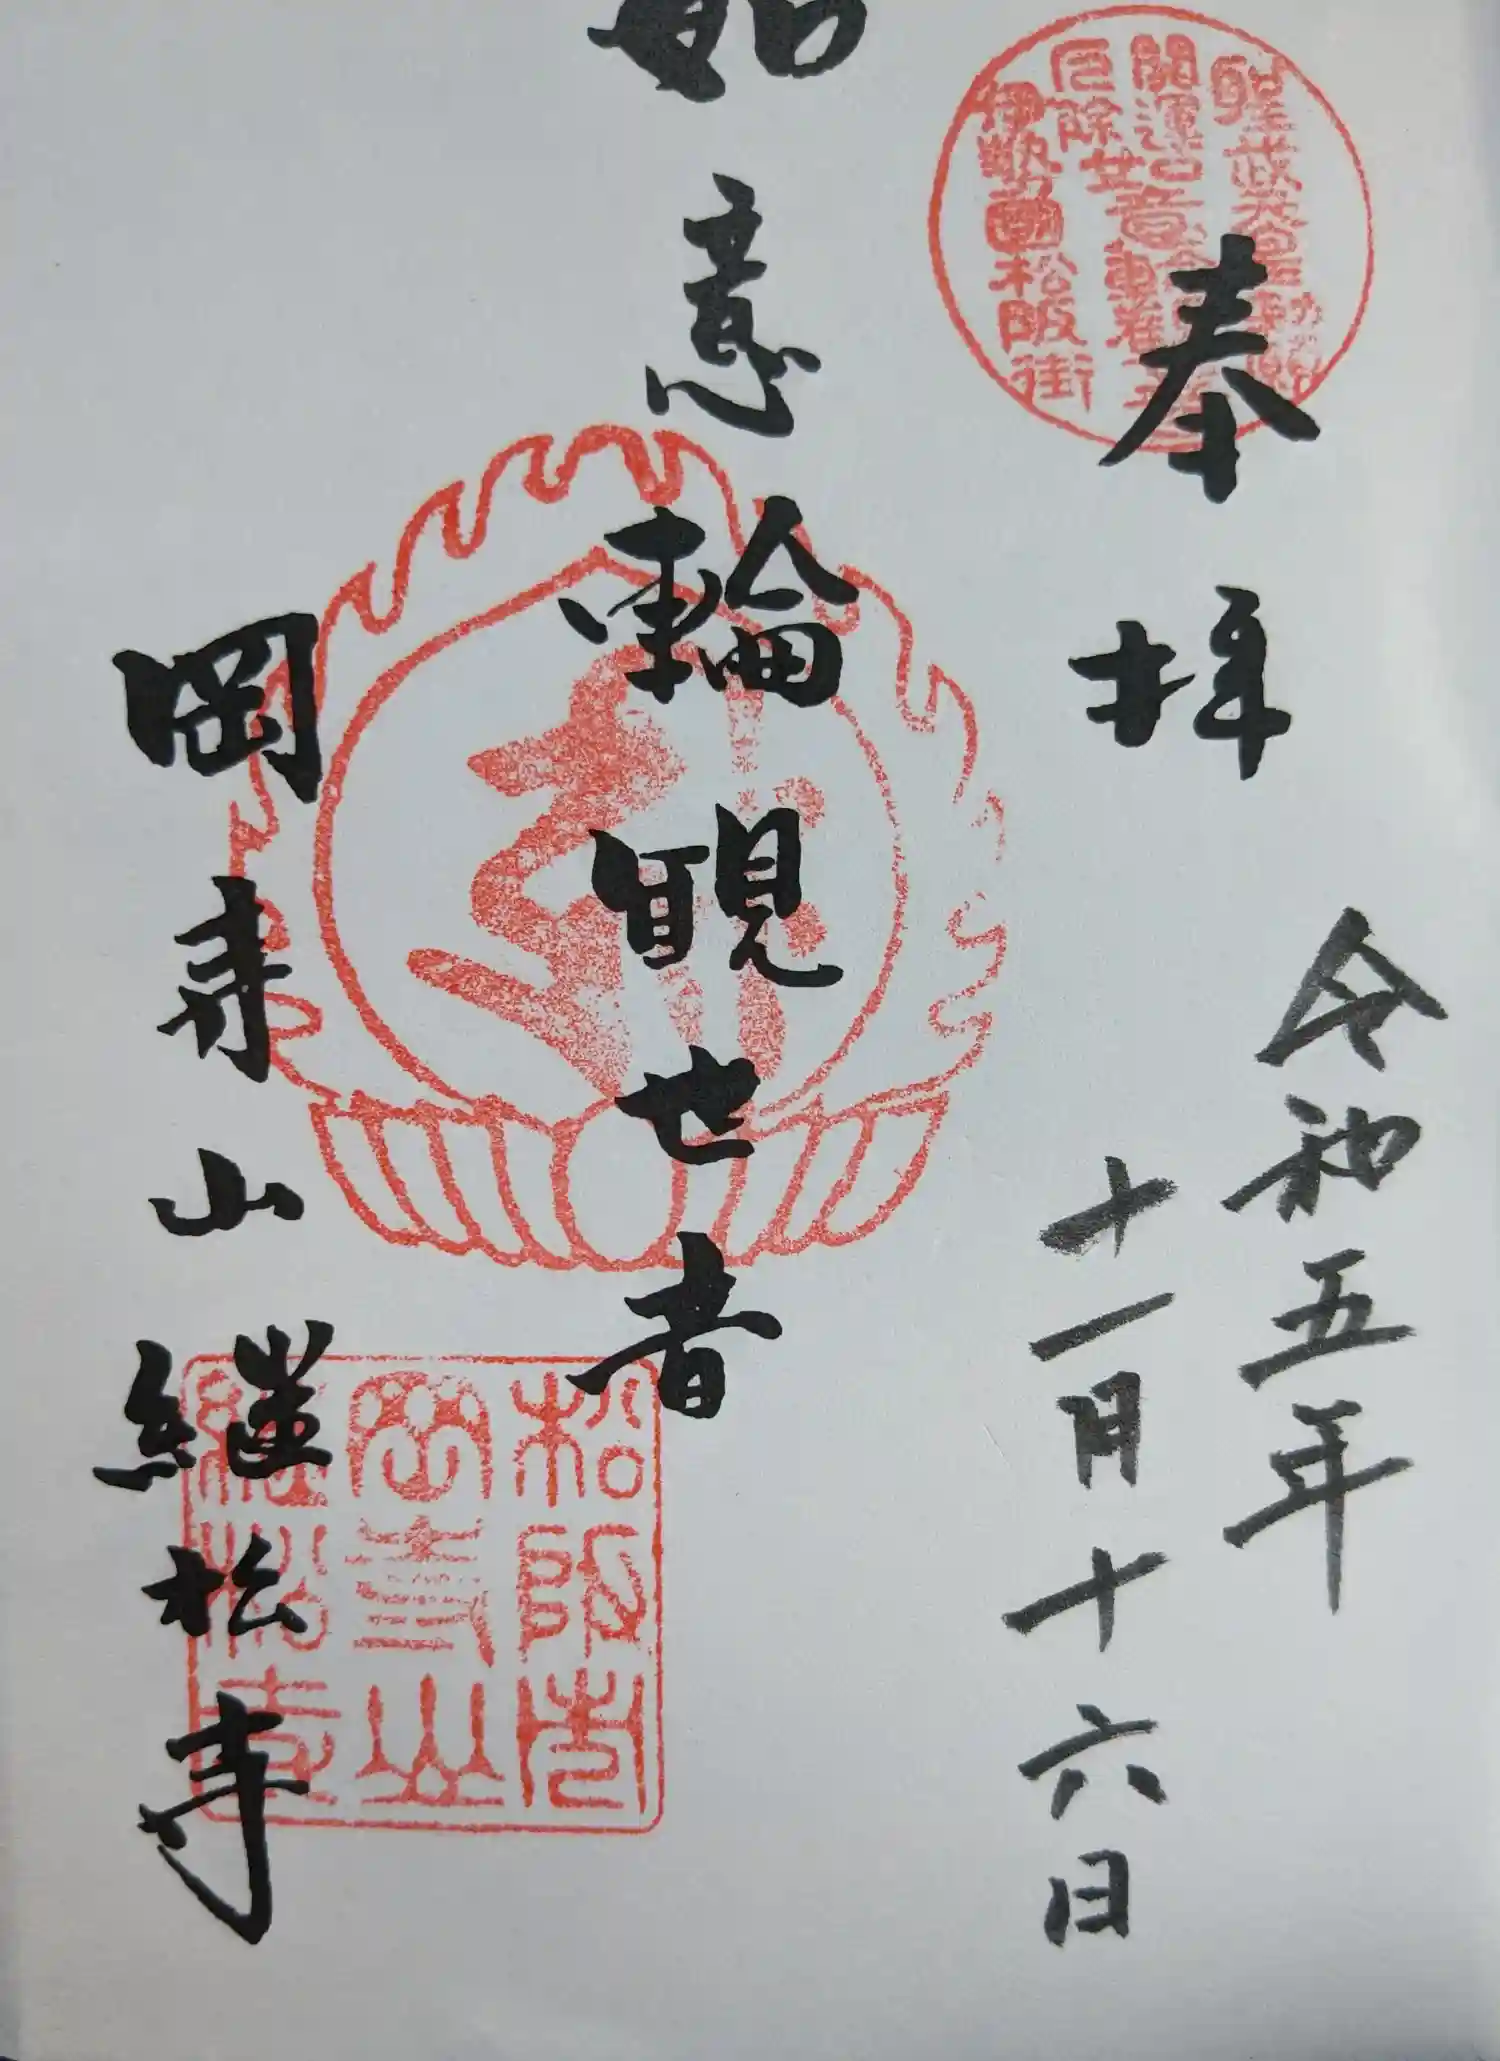 奉拝
令和五年
十一月十六日
如意輪観世音
岡寺山継松寺
開運
厄除
伊勢國松阪街
松阪市
岡寺山
継松寺